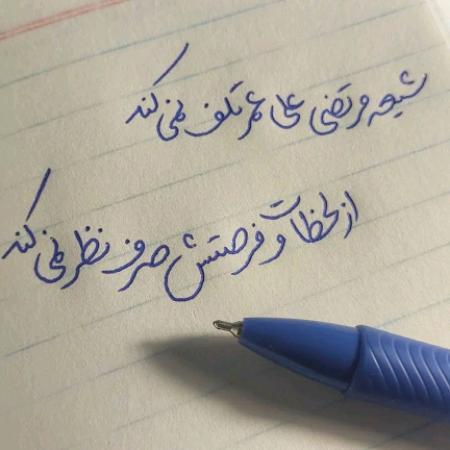 شیعه مرتضی علی عمر تلف نمی کند
از لحظات و فرصتش صرف نظر نمی کند